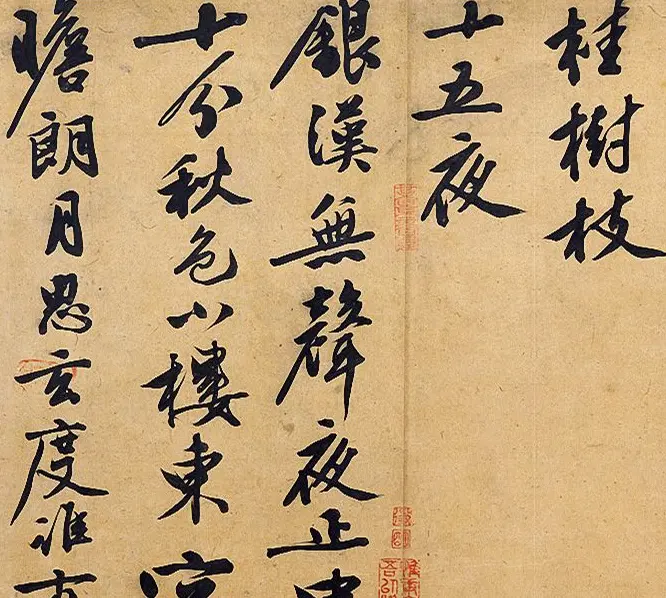 桂樹枝
十五夜
銀漢無聲夜正
十分秋色小樓東
瞻朗月思玄度誰